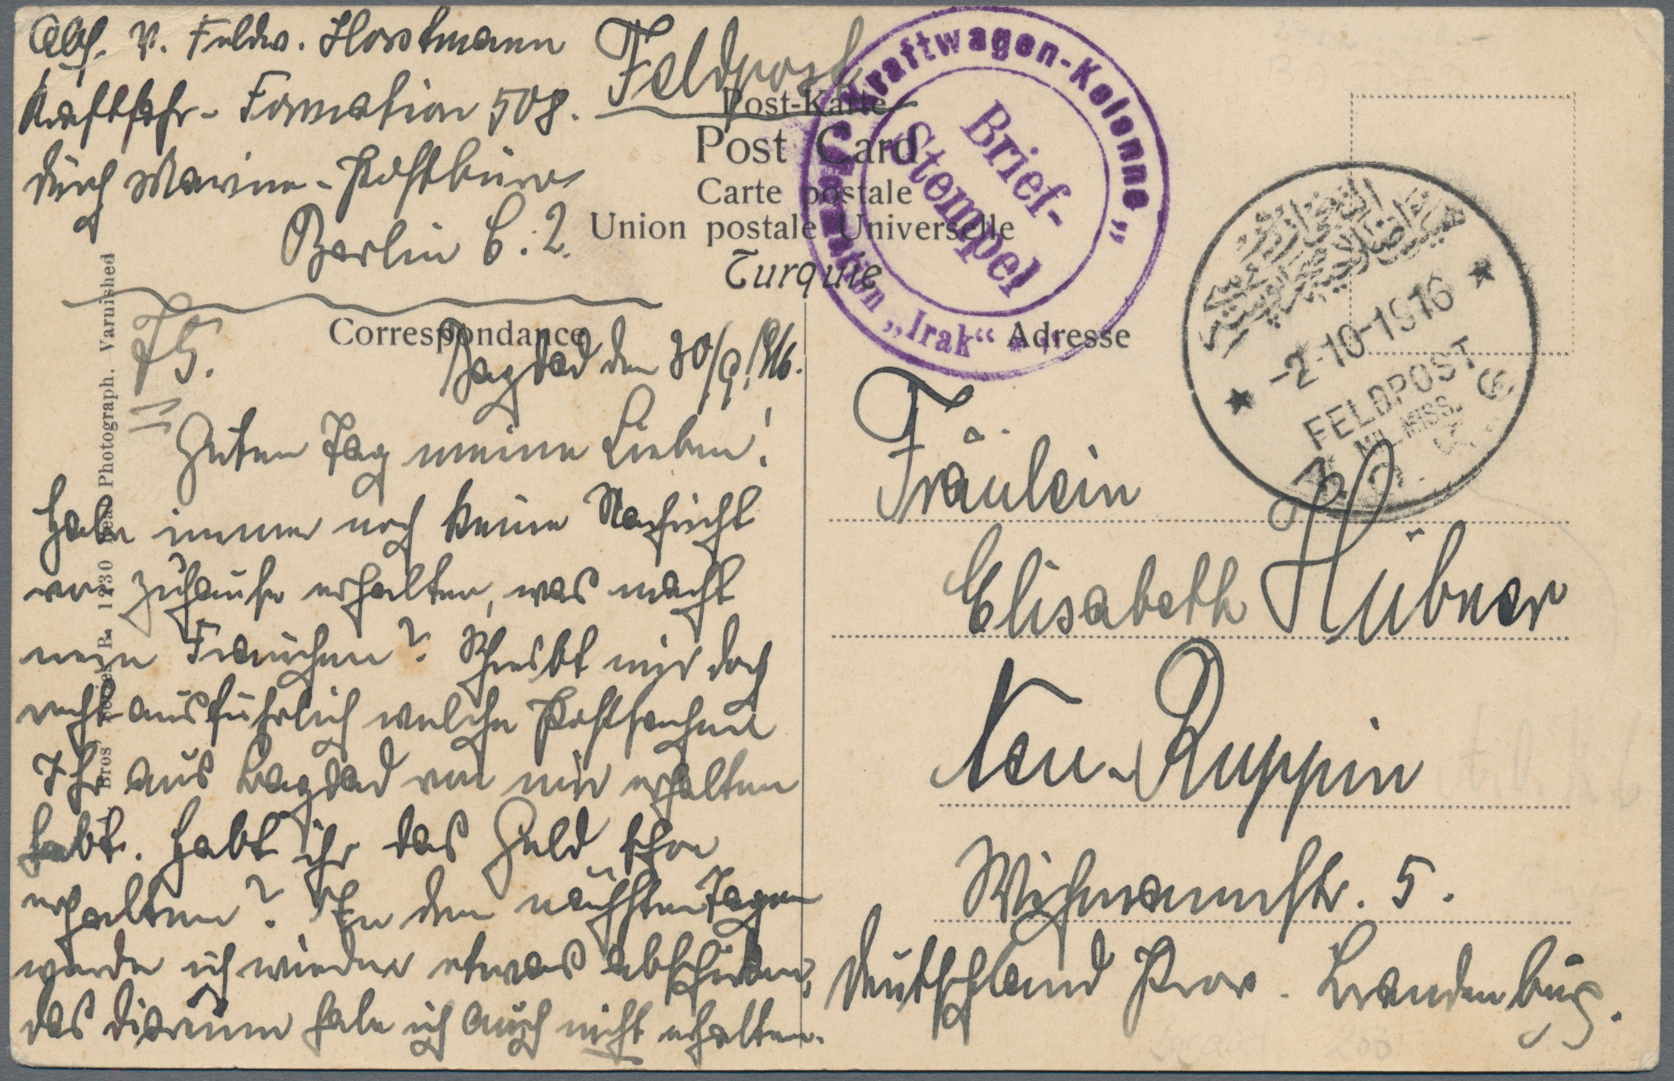 Abs. V. Feldw. Horstmann
Kraftfahr-Formation 508.
durch Marine-Postbüro
Berlin C. 2.
Feldpost
Post-Karte
Post Card
Carte postale
Union postale Universelle
Turquie
Kraftwagen-Kolonne "
Formation „Irak“
Brief-
Stempel
-2-10-1916
FELDPOST
MIL. MISS.
Correspondance
Adresse
75.
Bagdad den 30/9. 1916.
Guten Tag meine Lieben!
Habe immer noch keine Nachricht
von zuhause erhalten, was macht
mein Frauchen? Schreibt mir doch
recht ausführlich welche Postsachen
Ihr aus Bagdad von mir erhalten
habt. Habt ihr das Geld schon
erhalten? In den nächsten Tagen
werde ich wieder etwas abschicken,
das habe ich auch nicht erhalten.
Fräulein
Elisabeth Hübner
Neu-Ruppin
Wichmannstr. 5.
Deutschland Prov. Brandenburg.
Bros Photograph. Varnished